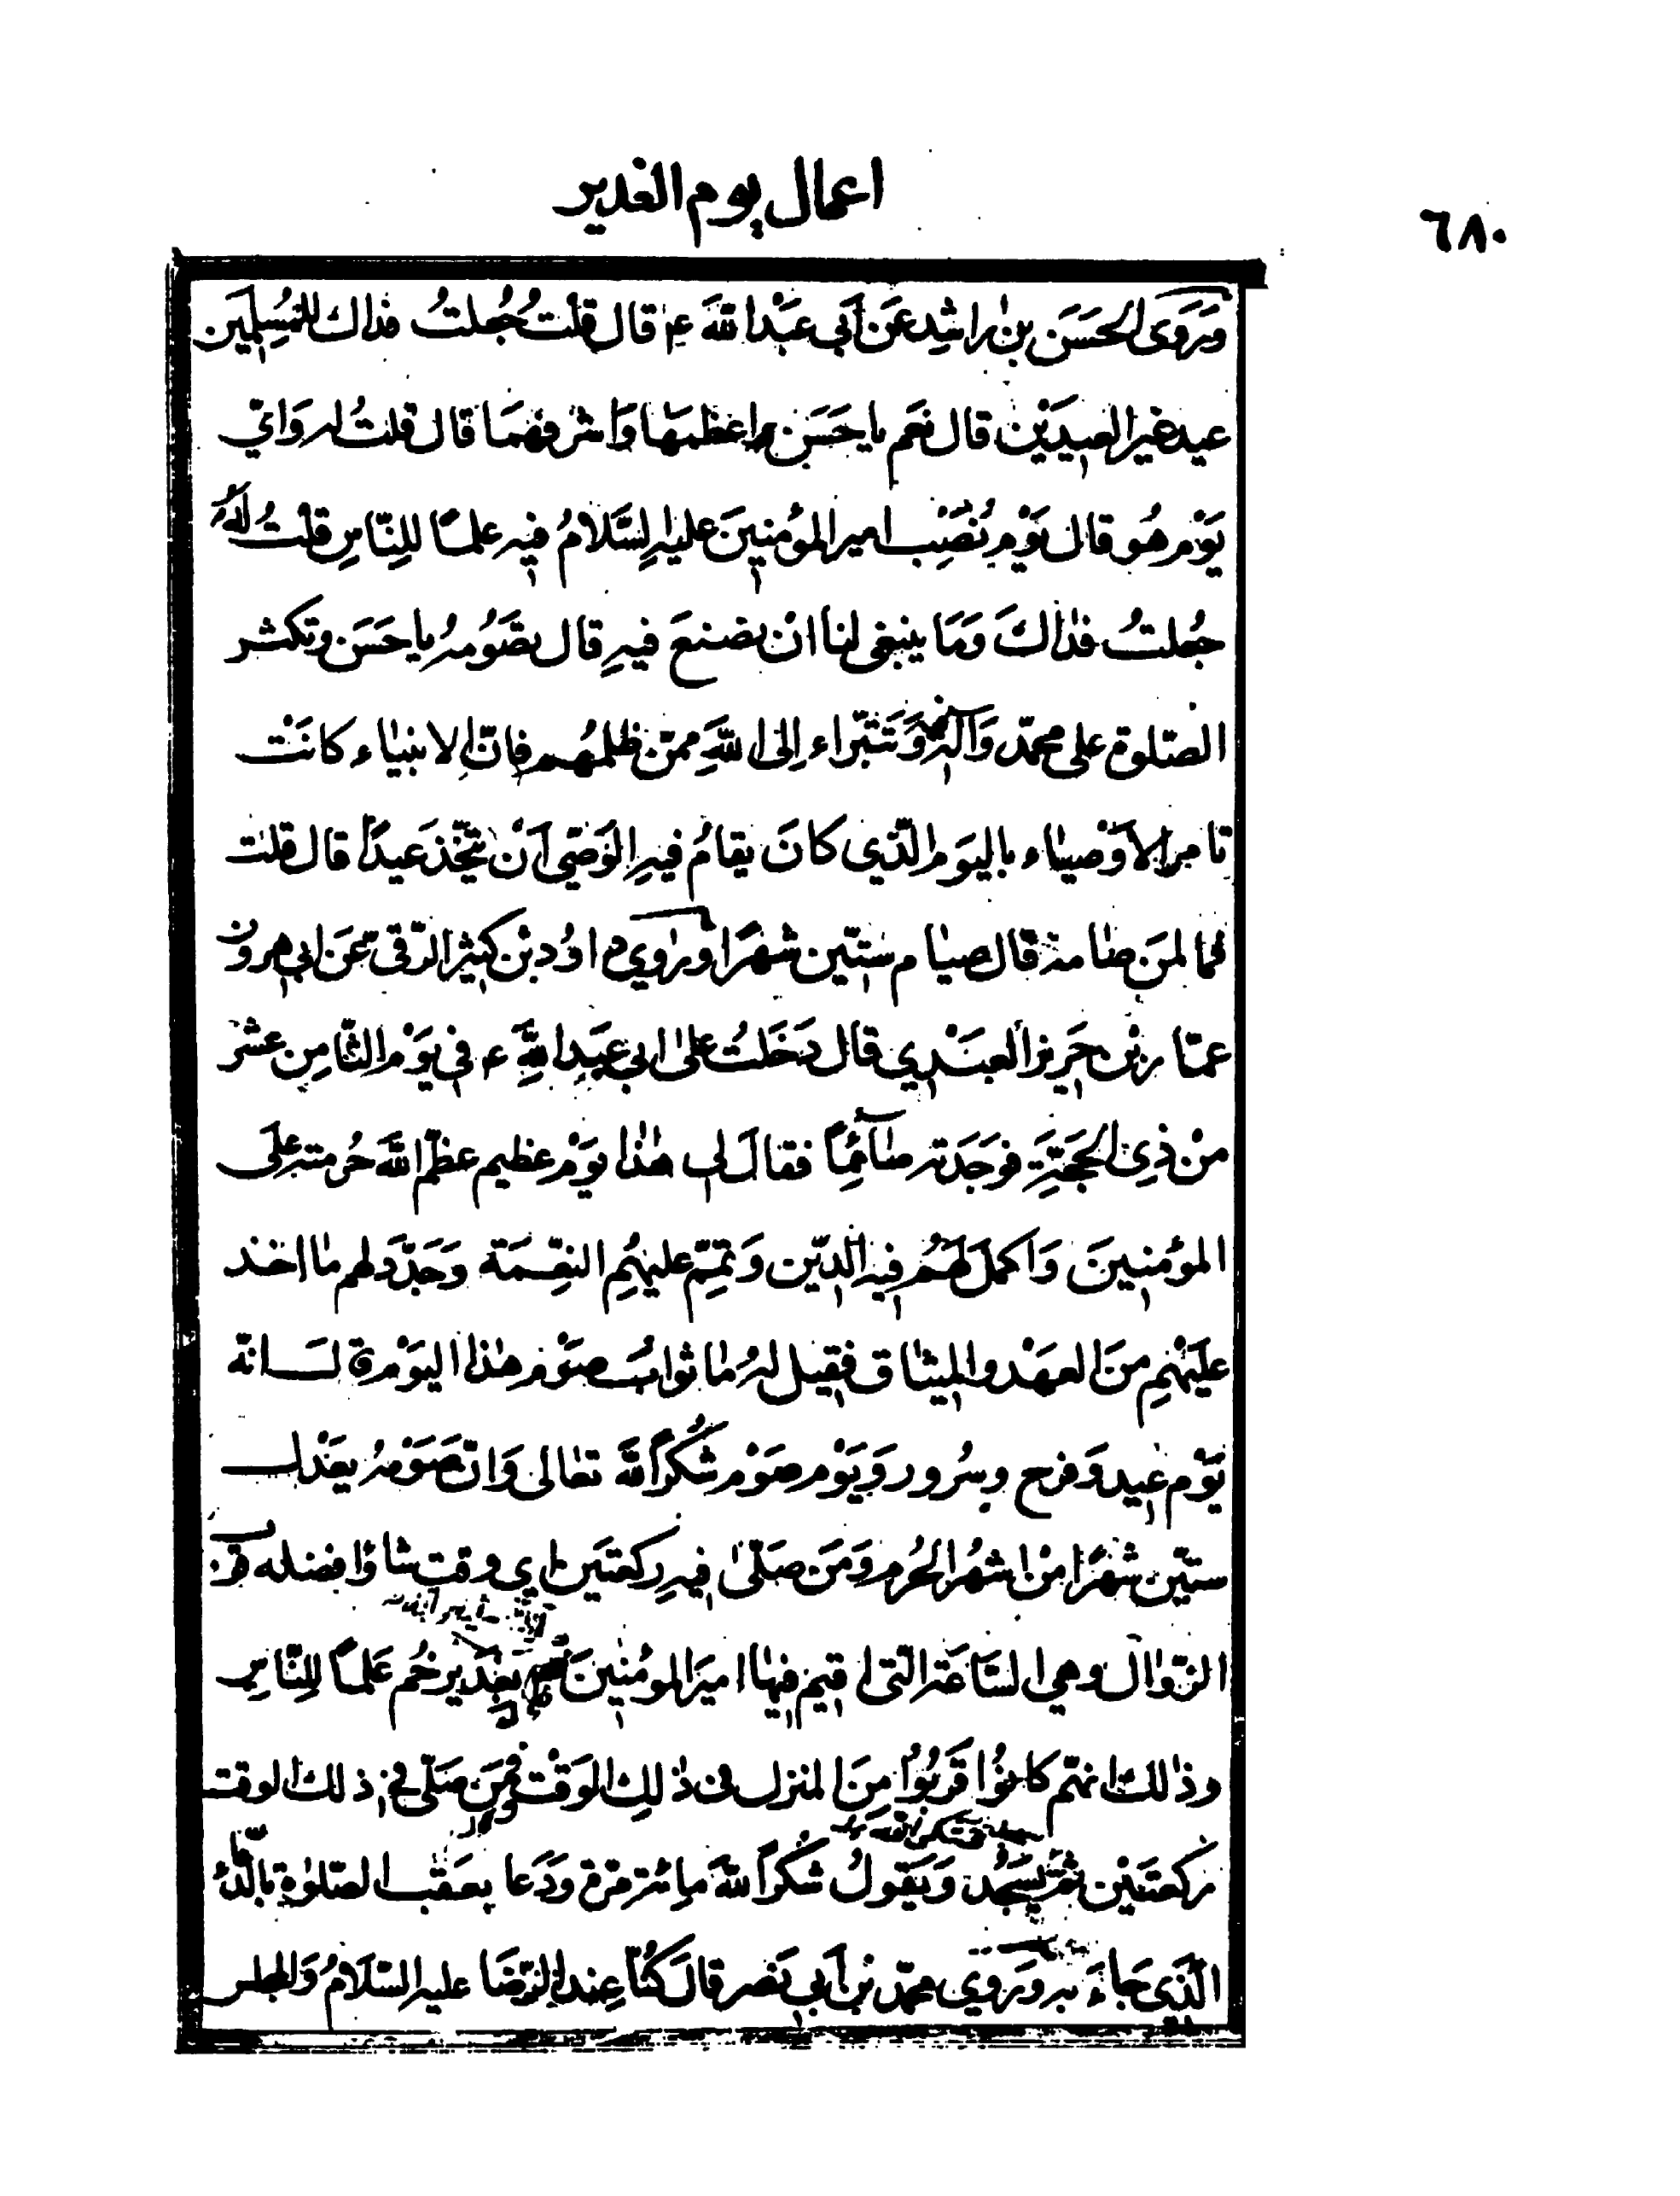 اعمال يوم الغدير
٦٨٠
وَرَوَى الحَسَنَ بنُ راشِد عَن أَبي عَبْدالله ع قال قلتُ جُعلتُ فداك للمُسِلمَين
عيد غير العيدَيْن قال نعَم يا حَسَن واعظمهَا وَاشرفهمَا قال قلتُ له وَايّ
يَوْم هُو قال يَوْم نُصِب امير المؤمنينَ عليهِ السَّلامُ فيه علمًا للِنّاسِ قلتُ لَهُ
جُعلتُ فداكَ وَمَا ينبغى لنا انْ نصنعَ فيهِ قال تصَوُمهُ يا حَسَن وتكثر
الصّلوة على محمّد وَآلِه وَتَتَبّراء اِلى اللهَِ ممّن ظلمهُم فانّ الانبياء كانَتْ
تامر الأَوْصياء باليوَم الّذي كانَ يقامُ فيهِ الوَصّي اَنْ يتّخذَ عيدًا قال قلت
فما لمَن صامه قال صيام ستّين شهرًا وَروي داوُد بْن كثير الرّقى عَن ابي هرون
عمّار بْن حَرِيز العبَدي قال دَخَلتُ على ابي عَبدِ اللهِ ع في يَوْم الثّامِن عشر
مْن ذِى الحَجّةِ فوَجَدته صآئمًِا فقالَ لي هٰذا يوَْم عظيم عظّم اللهَ حُرمته علَى
المؤمنِينَ وَاكملَ لهَُم فيه الدّين وَتمّم عليهُمِ النِعّمَة وَجَدّد لهم ما اخذ
علَيْهِم منَ العهَدْ والميثاق فقيل لهُ ما ثوابُ صَوْم هٰذا اليَوْم قال انّه
يَوْم عيد وَفرح وسُرور وَيَوْم صَوْم شُكراً للهَ تعالى وَانّ صَوَْمهُ يعَدْل
ستّين شهْرًا منْ اشهُر الحُرم وَمَن صَلّىٰ فيهِ ركعتَين اي وقت شاء وَافضله قرب
الزّوال وهي السّاعَة الّتى اقيم فيها اميَر المؤمنِينَ بغدَير خُم عَلمًا للِنّاسِ
وذٰلك انهّم كانوُا قَرَبوُا مِنَ المنزل فى ذٰلِك الوَقْت فمَن صَلّى في ذلك الوقت
ركعتَيْن ثمّ يَسَجُد وَيَقولُ شُكراً للهَ مائة مَرّة وَدَعا بعَقب الصّلوٰةِ بالدّعاء
الّذَى جَاءَ به وَرَوي محمّد بْن اَبي نَصر قالَ كُنّا عِند الرّضَا عليه السّلاَمُ وَالمجلس